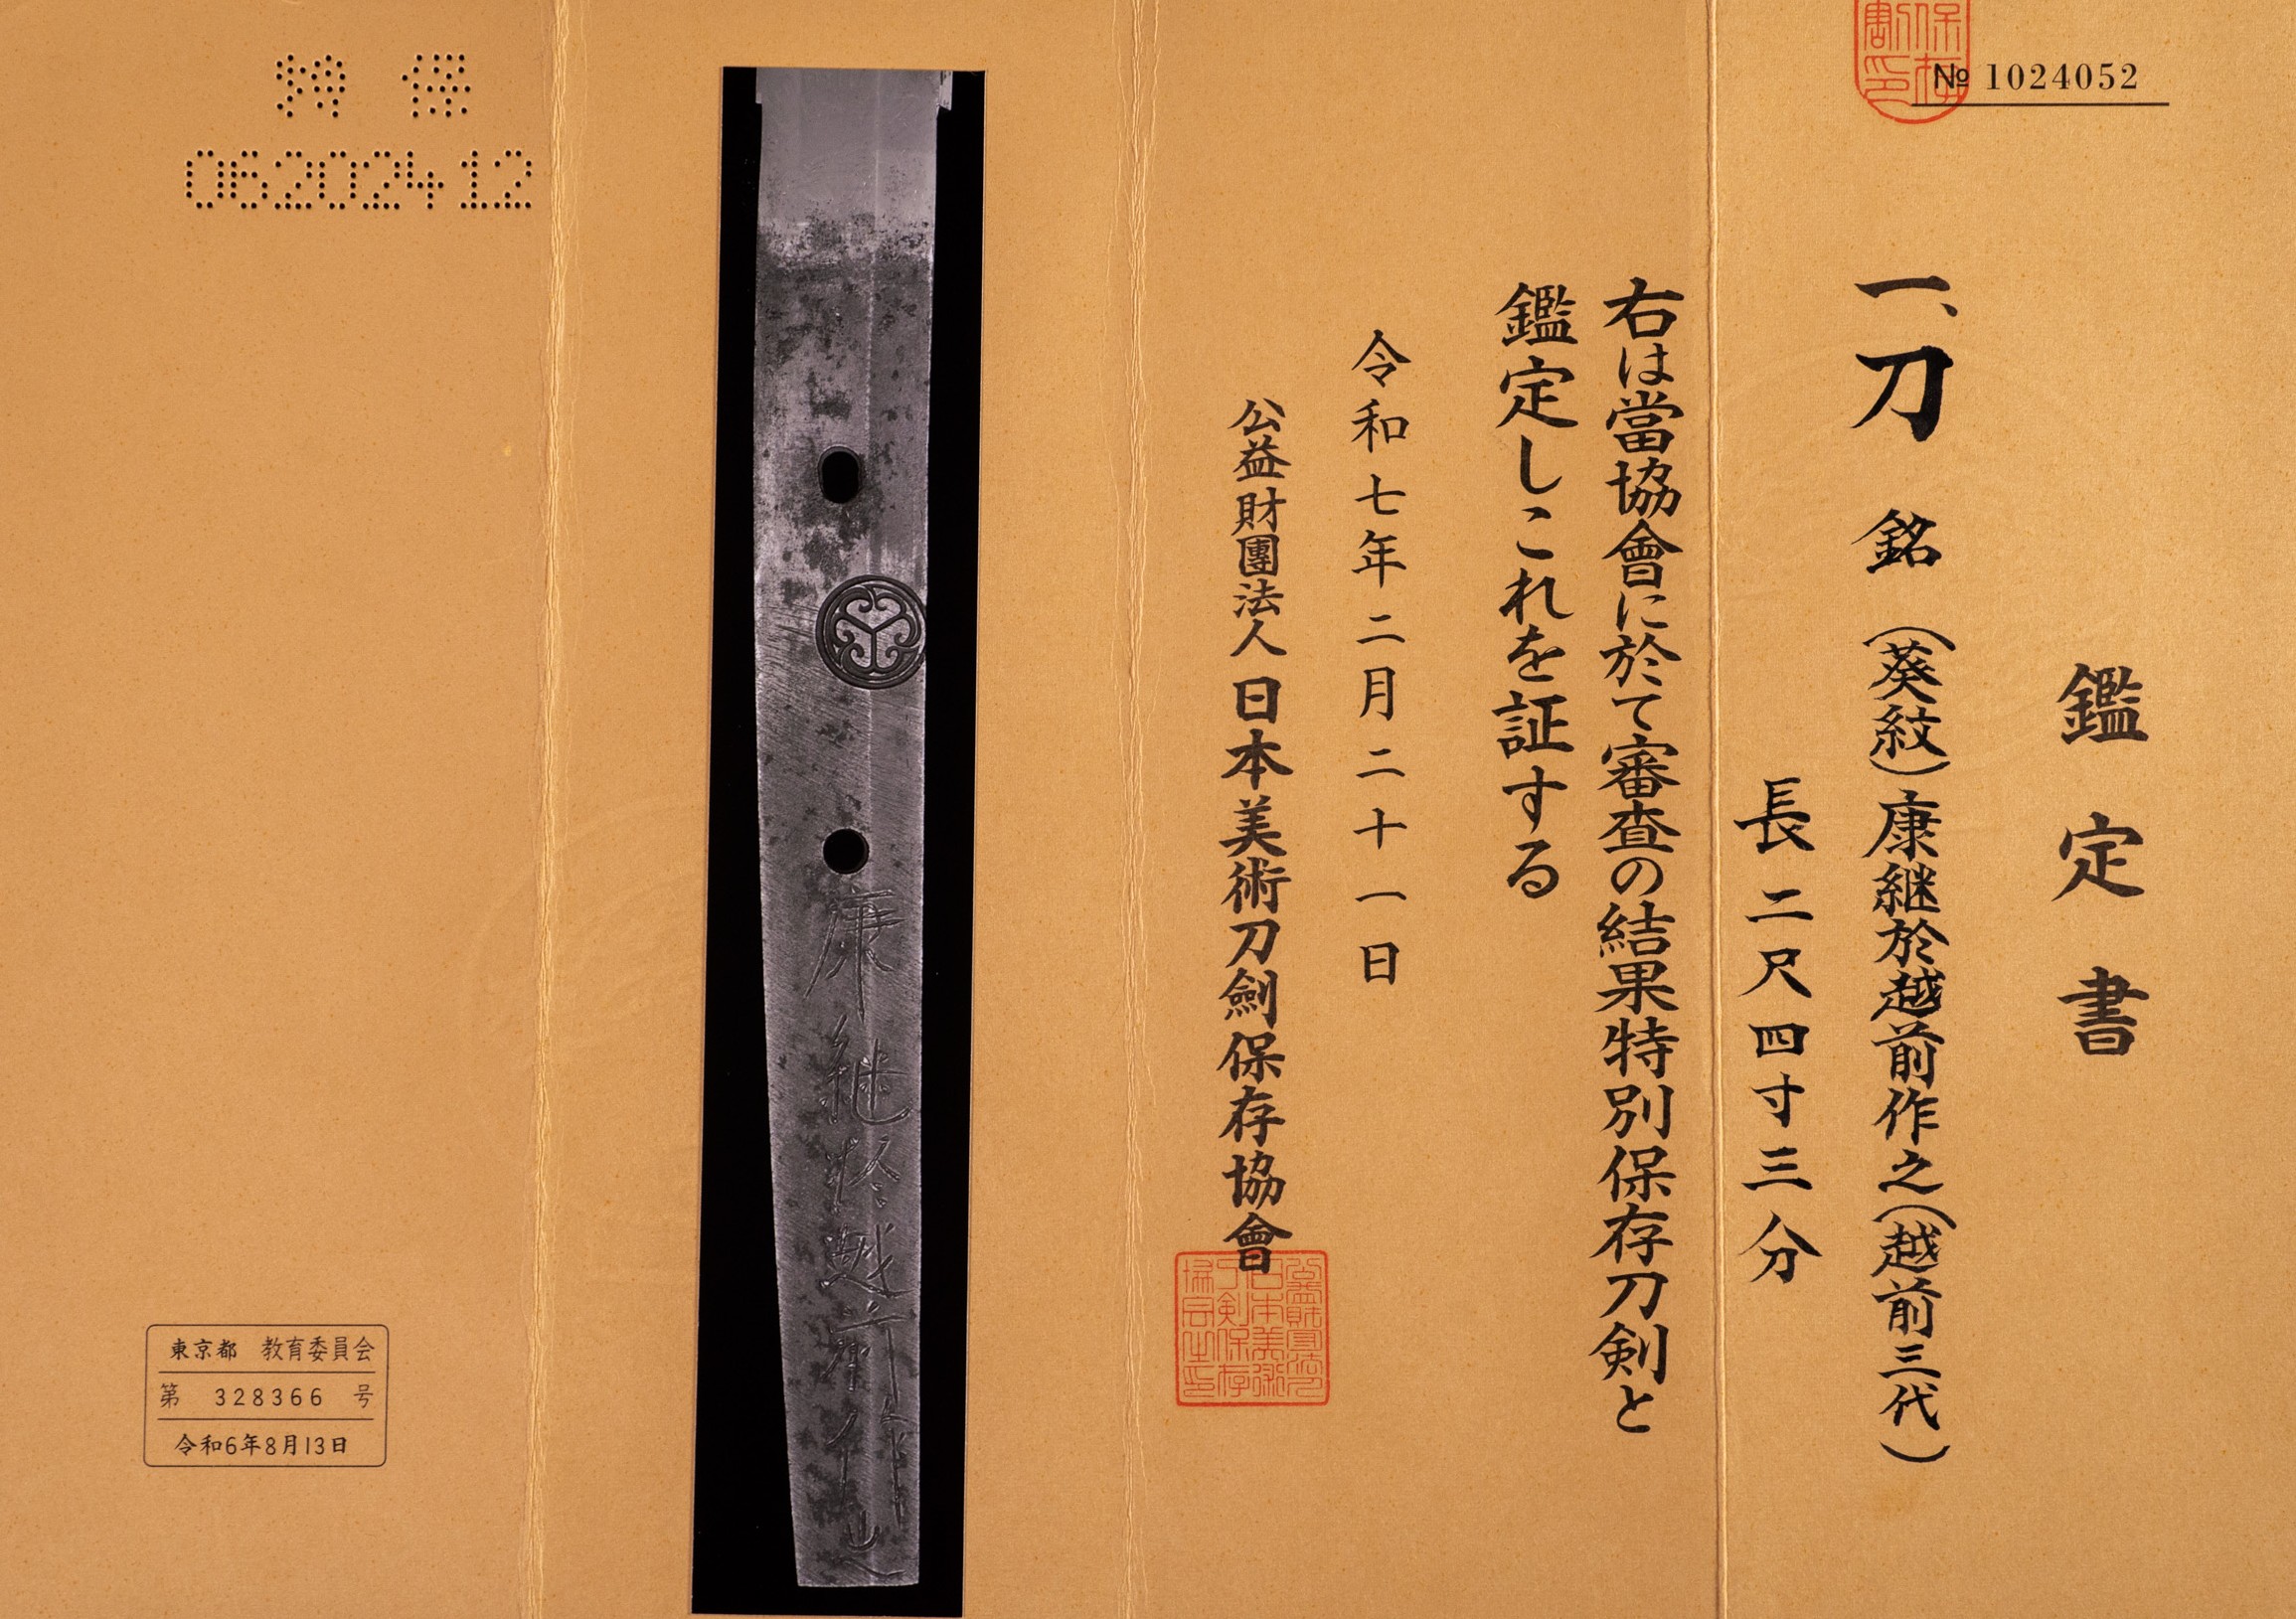 № 1024052
鑑定書
一、刀 銘 (葵紋)康継於越前作之(越前三代)
長二尺四寸三分
右は當協會に於て審査の結果特別保存刀剣と
鑑定しこれを証する
令和七年二月二十一日
公益財團法人 日本美術刀劍保存協會
康継於越前作之
特保
06202412
東京都 教育委員会
第 328366 号
令和6年8月13日